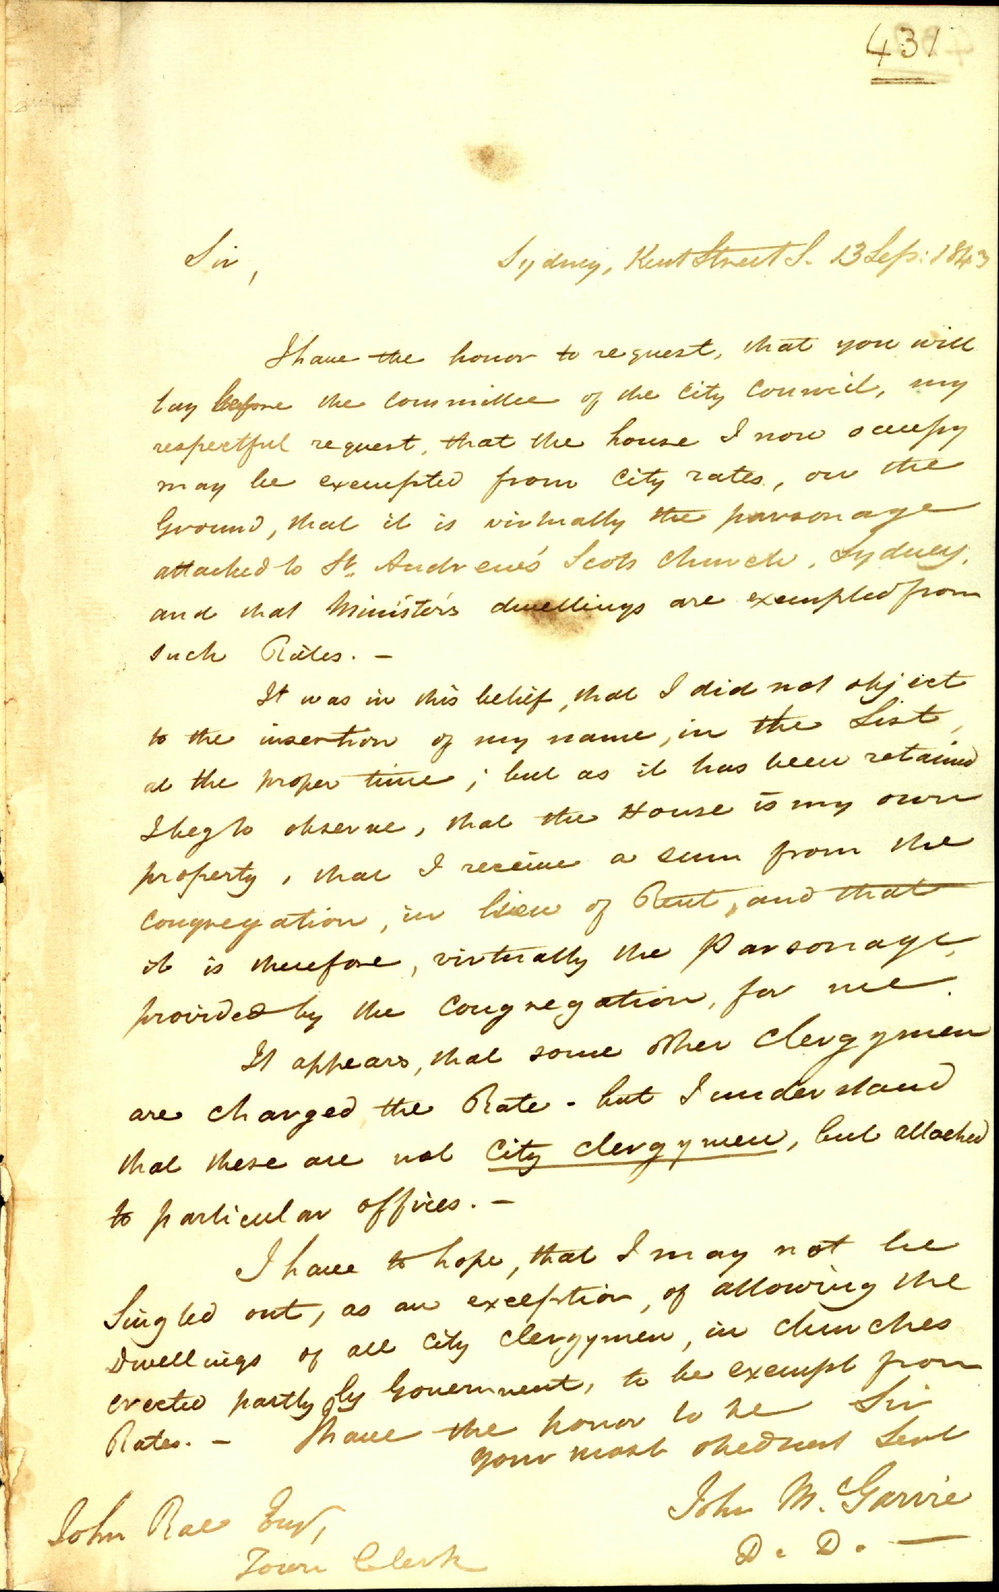 431
Sir,
Sydney, Kent Street S. 13 Sep: 1843
I have the honor to request, that you will
lay before the Committee of the City Council, my
respectful request, that the house I now occupy
may be exempted from City rates, on the
Ground, that it is virtually the parsonage
attached to St. Andrew's Scots Church, Sydney,
and that Minister's dwellings are exempted from
such Rates. -
It was in this belief, that I did not object
to the insertion of my name, in the List,
at the proper time; but as it has been retained
I beg to observe, that the House is my own
property, that I receive a sum from the
Congregation, in lieu of Rent, and that
it is therefore, virtually the Parsonage,
provided by the Congregation, for me.
It appears, that some other Clergymen
are charged the Rate - but I understand
that these are not City Clergymen, but attached
to particular offices. -
I have to hope, that I may not be
Singled out, as an exception, of allowing the
Dwellings of all City Clergymen, in churches
erected partly by Government, to be exempt from
Rates. - I have the honor to be Sir
Your most obedient Servt
John McGarvie
D. D. -
John Rae Esqr,
Town Clerk